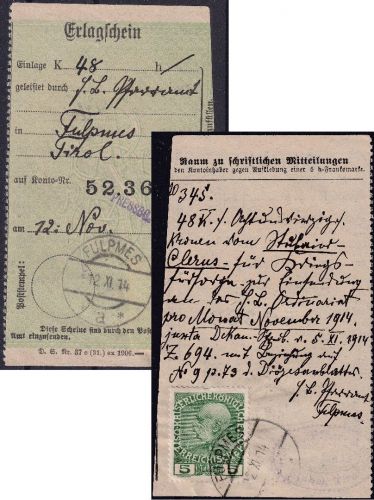 Erlagschein
Einlage K 48 h/
geleistet durch f. b. Pfarramt
in Fulpmes
Tirol.
auf Konto-Nr. 52,36
PRESSB
am 12. Nov.
Poststempel:
FULPMES
12 XI 14
a
Diese Scheine sind durch den Post
Amt einzusenden.
D. S. Nr. 37 a (31.) ex 1906.
Raum zu schriftlichen Mitteilungen
den Kontoinhaber gegen Aufklebung einer 5 h-Frankomarke.
345.
48 K. / Achtundvierzig /
Kronen vom Stubaier
Clerus für Kriegs-
fürsorge zur
an das f. b. Ordinariat
pro Monat November 1914
juxta Dekan. v. 5. XI. 1914
Z 694. mit
N. 9 p. 73 d. Diözesanblattes.
f. b. Pfarramt
Fulpmes.
5 5
FULPMES
12 XI 14